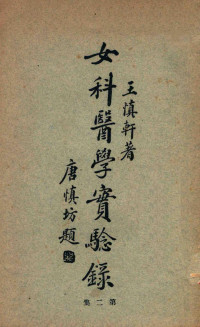 王慎軒著
女科醫學實驗錄
唐慎坊題
第二集